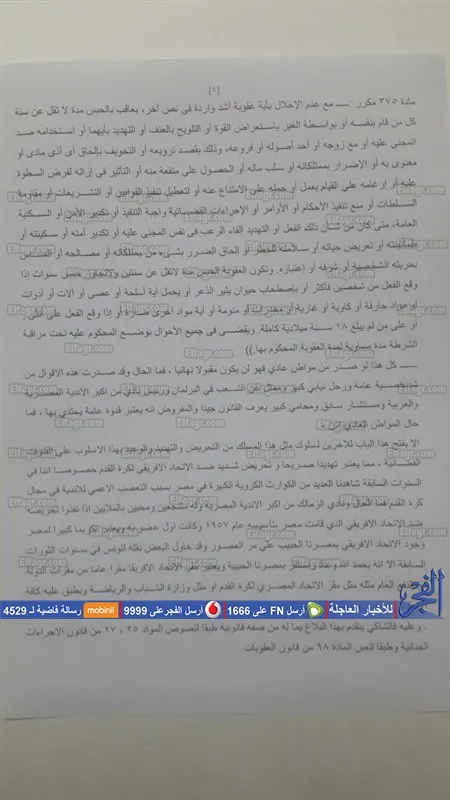 [٤]
مادة ٣٧٥ مكرر :ــــ مع عدم الإخلال بأية عقوبة أشد واردة فى نص آخر، يعاقب بالحبس مدة لا تقل عن سنة
كل من قام بنفسه أو بواسطة الغير باستعراض القوة أو التلويح بالعنف أو التهديد بأيهما أو استخدامه ضد
المجنى عليه أو مع زوجه أو أحد أصوله أو فروعه، وذلك بقصد ترويعه أو التخويف بإلحاق أى أذى مادى أو
معنوى به أو الإضرار بممتلكاته أو سلب ماله أو الحصول على منفعة منه أو التأثير فى إرادته لفرض السطوة
عليه أو إرغامه على القيام بعمل أو حمله على الامتناع عنه أو لتعطيل تنفيذ القوانين أو التشريعات أو مقاومة
السلطات أو منع تنفيذ الأحكام أو الأوامر أو الإجراءات القضائية واجبة التنفيذ أو تكدير الأمن أو السكينة
العامة، متى كان من شأن ذلك الفعل أو التهديد إلقاء الرعب فى نفس المجنى عليه أو تكدير أمنه أو سكينته أو
طمأنينته أو تعريض حياته أو سلامته للخطر أو إلحاق الضرر بشىء من ممتلكاته أو مصالحه أو المساس
بحريته الشخصية أو شرفه أو إعتباره. وتكون العقوبة الحبس مدة لاتقل عن سنتين ولاتجاوز خمس سنوات إذا
وقع الفعل من شخصين فأكثر أو بإصطحاب حيوان يثير الذعر أو بحمل أية أسلحة أو عصى أو آلات أو أدوات
أو مواد حارقة أو كاوية أو غازية أو مخدرات أو منومة أو أية مواد أخرى ضارة أو إذا وقع الفعل على أنثى،
أو على من لم يبلغ ١٨ سنة ميلادية كاملة. ويقضى فى جميع الأحوال بوضع المحكوم عليه تحت مراقبة
الشرطة مدة مساوية لمدة العقوبة المحكوم بها.))
ــــــ كل هذا لو صدر من مواطن عادي فهو لن يكون مقبولا نهائيا ، فما الحال وقد صدرت هذه الاقوال من
شخصية عامة ورجل نيابي كبير وممثل عن الشعب في البرلمان ورئيس نادي من اكبر الاندية المصرية
والعربية ومستشار سابق ومحامي كبير يعرف القانون جيدا والمفروض انه يعتبر قدوة عامة يحتذي بها ، فما
حال المواطن العادي اذن ؟
الا يفتح هذا الباب للاخرين لسلوك مثل هذا المسلك من التحريض والتهديد والوعيد بهذا الاسلوب على القنوات
الفضائية ، مما يعتبر تهديدا صريحا و تحريض شديد ضد الاتحاد الافريقي لكرة القدم خصوصا اننا في
السنوات السابقة شاهدنا العديد من الكوارث الكروية الكبيرة في مصر بسبب التعصب الاعمي للاندية في مجال
كرة القدم فما الحال ونادي الزمالك من اكبر الاندية المصرية وله مشجعين ومحبين بالملايين اذا نفذوا تحريضه
ضد الاتحاد الافريقي الذي قامت مصر بتأسيسه عام ١٩٥٧ وكانت اول عضو به ويعتبر تكريما كبيرا لمصر
وجود الاتحاد الافريقي بمصرنا الحبيب علي مر العصور وقد حاول البعض نقله لتونس في سنوات الثورات
السابقة الا انه بحمد الله وعاد واستقر بمصرنا الحبيبة ويعتبر مقر الاتحاد الافريقا مقرا عاما من مقرات الدولة
العام مثله مثل مقر الاتحاد المصري لكرة القدم او مثل وزارة الشباب والرياضة ويطبق عليه كافة
الفجر للأخبار العاجلة أرسل FN على 1666 أرسل الفجر على 9999 mobinil رسالة فاضية لـ 4529
. وعليه فالشاكي يتقدم بهذا البلاغ بما له من صفه قانونية طبقا لنصوص المواد ٢٥ ، ٢٧ من قانون الاجراءات
الجنائية وطبقا لنص المادة ٩٨ من قانون العقوبات